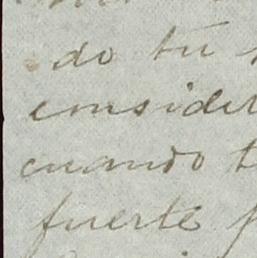 do tu
consider
cuando t
fuerte p